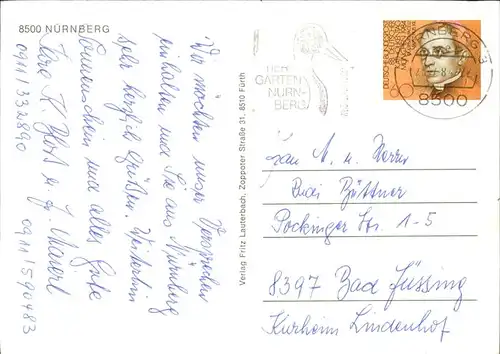 8500 NÜRNBERG
Wir möchten unser Versprechen
einhalten und Sie aus Nürnberg
sehr herzlich grüßen. Weiterhin
Sonnenschein und alles Gute
Ihre K.
0911/332890
0911/590483
Verlag Fritz Lauterbach, Zoppoter Straße 31, 8510 Fürth
DER
GARTEN
NÜRN-
BERG
NÜRNBERG 3
8500
60
An M. u. Herrn
Rudi Büttner
Pockinger Str. 1-5
8397 Bad Füssing
Kurheim Lindenhof